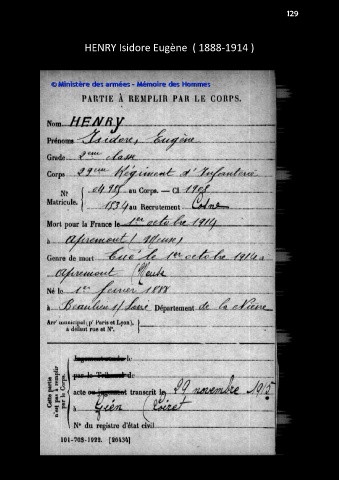 129
HENRY Isidore Eugène ( 1888-1914 )
© Ministère des armées - Mémoire des Hommes
PARTIE À REMPLIR PAR LE CORPS.
Nom HENRY
Prénoms Isidore, Eugène
Grade 2eme classe
Corps 29eme Régiment d'Infanterie
N° 0495 au Corps. — Cl. 1908
Matricule. 1534 au Recrutement Cosne
Mort pour la France le 1er octobre 1914
à Apremont (Meuse)
Genre de mort Tué le 1er octobre 1914 à
Apremont (Meuse
Né le 1er février 1888
à Beaulieu s/ Loire Département de la Nièvre
Arr' municipal (p' Paris et Lyon),
à défaut rue et N°.
Cette partie n'est pas à remplir par le Corps.
Jugement rendu le
par le Tribunal de
acte ou jugement transcrit le 29 novembre 1915
à Gien (Loiret
N° du registre d'état civil
101-708-1922. [26434]